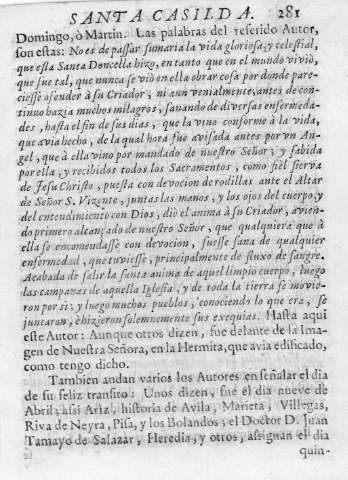 SANTA CASILDA. 281
Domingo, ò Martin. Las palabras del referido Autor,
son estas: No es de passar sumaria la vida gloriosa, y celestial,
que esta Santa Doncella hizo, en tanto que en el mundo vivió,
que fue tal, que nunca se viò en ella obrar cosa por donde pare-
ciesse ofender à su Criador; ni aun venialmente; antes de con-
tinuo hazia muchos milagros, sanando de diversas enfermeda-
des, hasta el fin de sus dias, que la vino conforme à la vida,
que avia hecho, de la qual hora fue avisada antes por un An-
gel, que à ella vino por mandado de nuestro Señor; y sabida
por ella, y recibidos todos los Sacramentos, como fièl sierva
de Jesu Christo, puesta con devocion de rodillas ante el Altar
de Señor S. Vizente, juntas las manos, y los ojos del cuerpo, y
del entendimiento con Dios, diò el anima à su Criador, avien-
do primero alcançado de nuestro Señor, que qualquiera que à
ella se encomendasse con devocion, fuesse sana de qualquier
enfermedad, que tuviesse, principalmente de fluxo de sangre.
Acabada de salir la santa anima de aquel limpio cuerpo, luego
las campanas de aquella Iglesia, y de toda la tierra se movie-
ron por si; y luego muchos pueblos, conociendo lo que era, se
juntaron, è hizieron solemnemente sus exequias. Hasta aqui
este Autor: Aunque otros dizen, fue delante de la Ima-
gen de Nuestra Señora, en la Hermita, que avia edificado,
como tengo dicho.
Tambien andan varios los Autores en señalar el dia
de su feliz transito: Unos dizen, fue el dia nueve de
Abril; assi Ariz, historia de Avila, Marieta, Villegas,
Riva de Neyra, Pisa, y los Bolandos; el Doctor D. Juan
Tamayo de Salazar, Heredia, y otros, assignan el dia
quin-